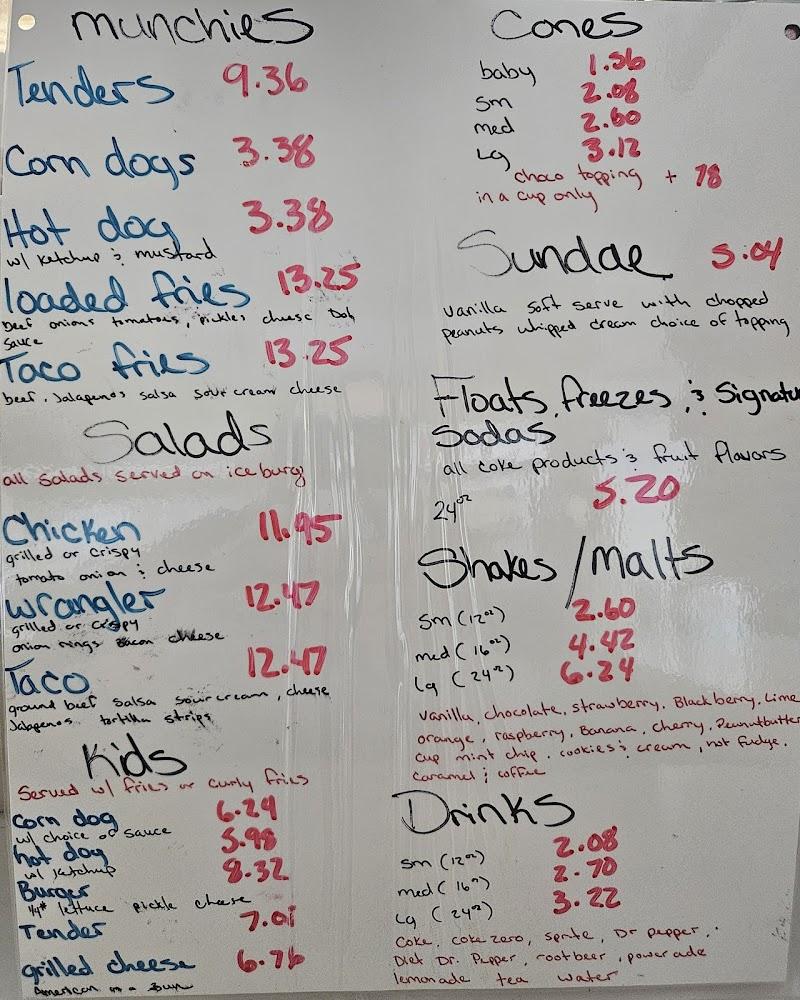 munchies
Tenders 9.36
Corn dogs 3.38
Hot dog 3.38
w/ ketchup & mustard
loaded fries 13.25
beef onions tomatoes, pickles cheese Doh
sauce
Taco fries 13.25
beef, Jalapenos salsa sour cream cheese
Salads
all salads served on iceburg
Chicken 11.95
grilled or crispy
tomato onion & cheese
wrangler 12.47
grilled or crispy
onion rings bacon cheese
Taco 12.47
ground beef salsa sour cream, cheese
Jalapenos tortilla strips
Kids
Served w/ fries or curly fries
corn dog 6.24
w/ choice of sauce
hot dog 5.98
w/ ketchup
Burger 8.32
1/4# lettuce pickle cheese
Tender 7.01
grilled cheese 6.76
American on a bun
Cones
baby 1.56
sm 2.08
med 2.60
Lg 3.12
choco topping + 78
in a cup only
Sundae 5.04
vanilla soft serve with chopped
peanuts whipped cream choice of topping
Floats, freezes, & Signatu
Sodas
all coke products & fruit flavors
24oz 5.20
Shakes/Malts
sm (12oz) 2.60
med (16oz) 4.42
Lg (24oz) 6.24
Vanilla, chocolate, strawberry, Blackberry, Lime
orange, raspberry, Banana, cherry, Peanutbutter
cup mint chip, cookies & cream, hot fudge,
caramel & coffee
Drinks
sm (12oz) 2.08
med (16oz) 2.70
Lg (24oz) 3.22
Coke, coke zero, sprite, Dr pepper,
Diet Dr. Pepper, rootbeer, powerade
lemonade tea water